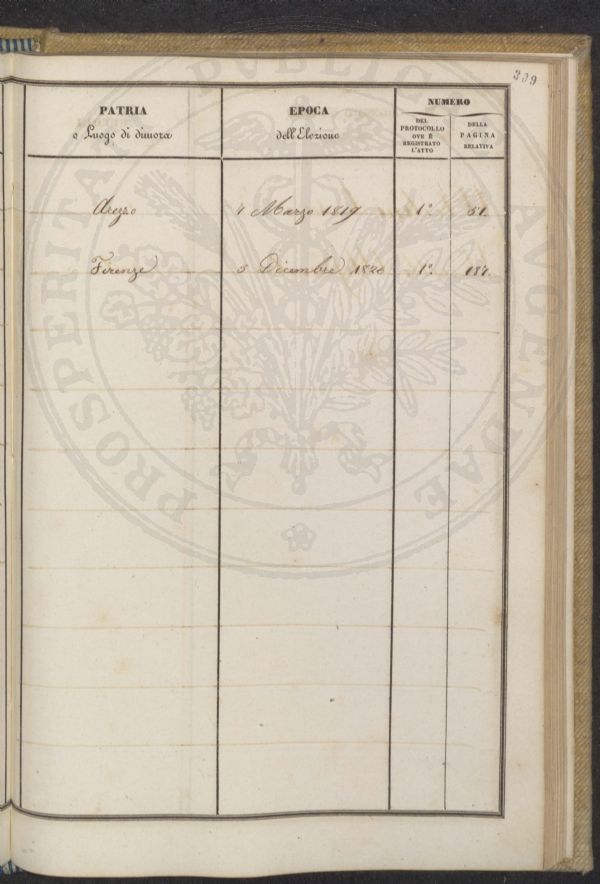 309
PATRIA
o Luogo di dimora
EPOCA
dell'Elezione
NUMERO
DEL
PROTOCOLLO
OVE È
REGISTRATO
L'ATTO
DELLA
PAGINA
RELATIVA
Arezzo 4 Marzo 1819 1° 51.
Firenze 5 Dicembre 1820 1° 184.
PROSPERITATI PUBLICAE AUGENDAE